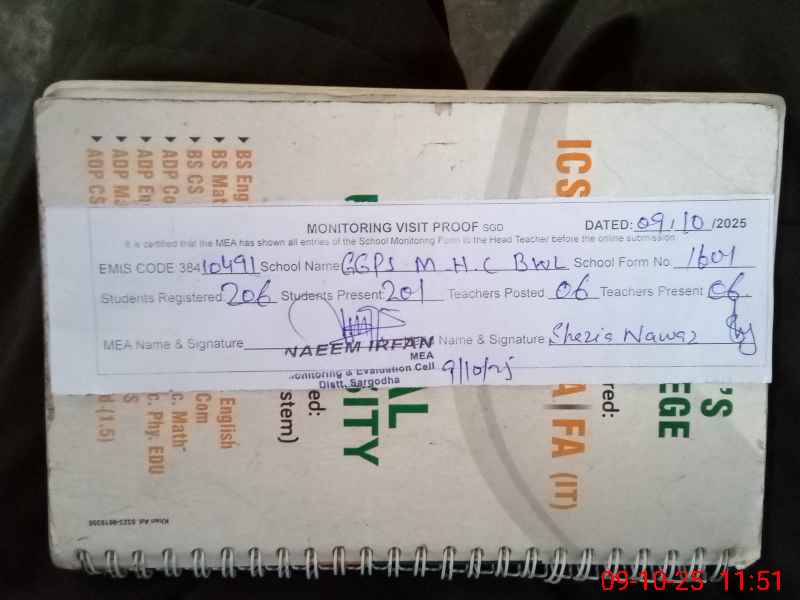 MONITORING VISIT PROOF SGD DATED: 09/10/2025
It is certified that the MEA has shown all entries of the School Monitoring Form to the Head Teacher before the online submission
EMIS CODE 38410491 School Name GGPS M.H.C BWL School Form No. 1601
Students Registered 206 Students Present 201 Teachers Posted 06 Teachers Present 06
MEA Name & Signature Name & Signature Shezia Nawaz
NAEEM IRFAN
MEA
Monitoring & Evaluation Cell
Distt. Sargodha
9/10/25
BS Eng
BS Mat
BS CS
ADP Co
ADP En
ADP Ma
ADP CS
ICS
English
Com
C. Math
C. Phy. EDU
(1.5)
stem)
SITY
AL
FA (IT)
EGE
09-10-25 11:51